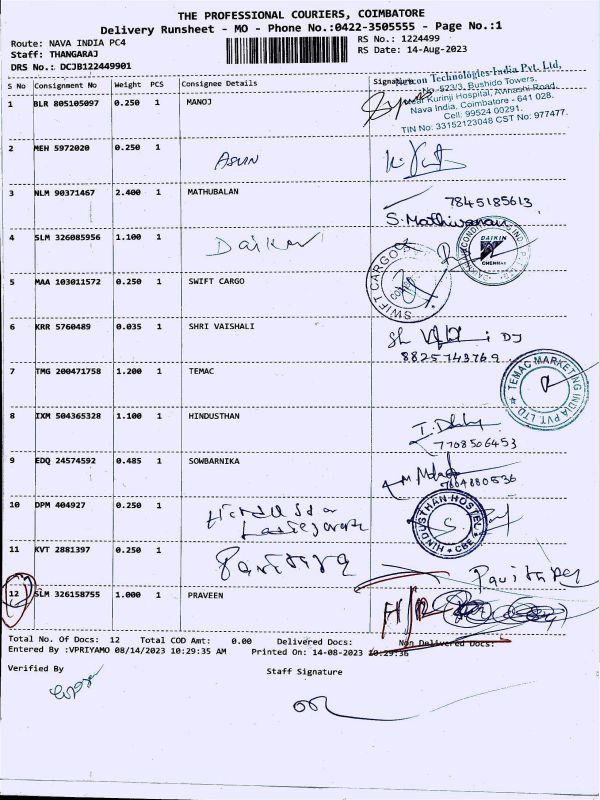 THE PROFESSIONAL COURIERS, COIMBATORE
Delivery Runsheet - MO - Phone No.:0422-3505555 - Page No.:1
Route: NAVA INDIA PC4
RS No.: 1224499
Staff: THANGARAJ
RS Date: 14-Aug-2023
DRS No.: DCJB122449901
S No Consignment No Weight PCS Consignee Details Signature
Technologies India Pvt. Ltd,
No. 523/3, Bushido Towers,
Near Kurinji Hospital, Avinashi Road,
Nava India, Coimbatore - 641 028.
Cell: 99524 00291.
TIN No: 33152123048 CST No: 977477.
1 BLR 805105097 0.250 1 MANOJ
2 MEH 5972020 0.250 1
3 NLM 90371467 2.400 1 MATHUBALAN
7845185613
S. Mathivanan
4 SLM 326085956 1.100 1 Daikin
DAIKIN
CHENNAI
5 MAA 103011572 0.250 1 SWIFT CARGO
SWIFT CARGO
6 KRR 5760489 0.035 1 SHRI VAISHALI
8825743769
7 TMG 200471758 1.200 1 TEMAC
TEMAC MARKETING INDIA PVT. LTD
8 IXM 504365328 1.100 1 HINDUSTHAN
7708506453
9 EDQ 24574592 0.485 1 SOWBARNIKA
10 DPM 404927 0.250 1
HINDUSTHAN HOSTEL
CBE
11 KVT 2881397 0.250 1
12 SLM 326158755 1.000 1 PRAVEEN
Total No. Of Docs: 12 Total COD Amt: 0.00 Delivered Docs: Non Delivered Docs:
Entered By :VPRIYAMO 08/14/2023 10:29:35 AM Printed On: 14-08-2023 10:29:36
Verified By
Staff Signature